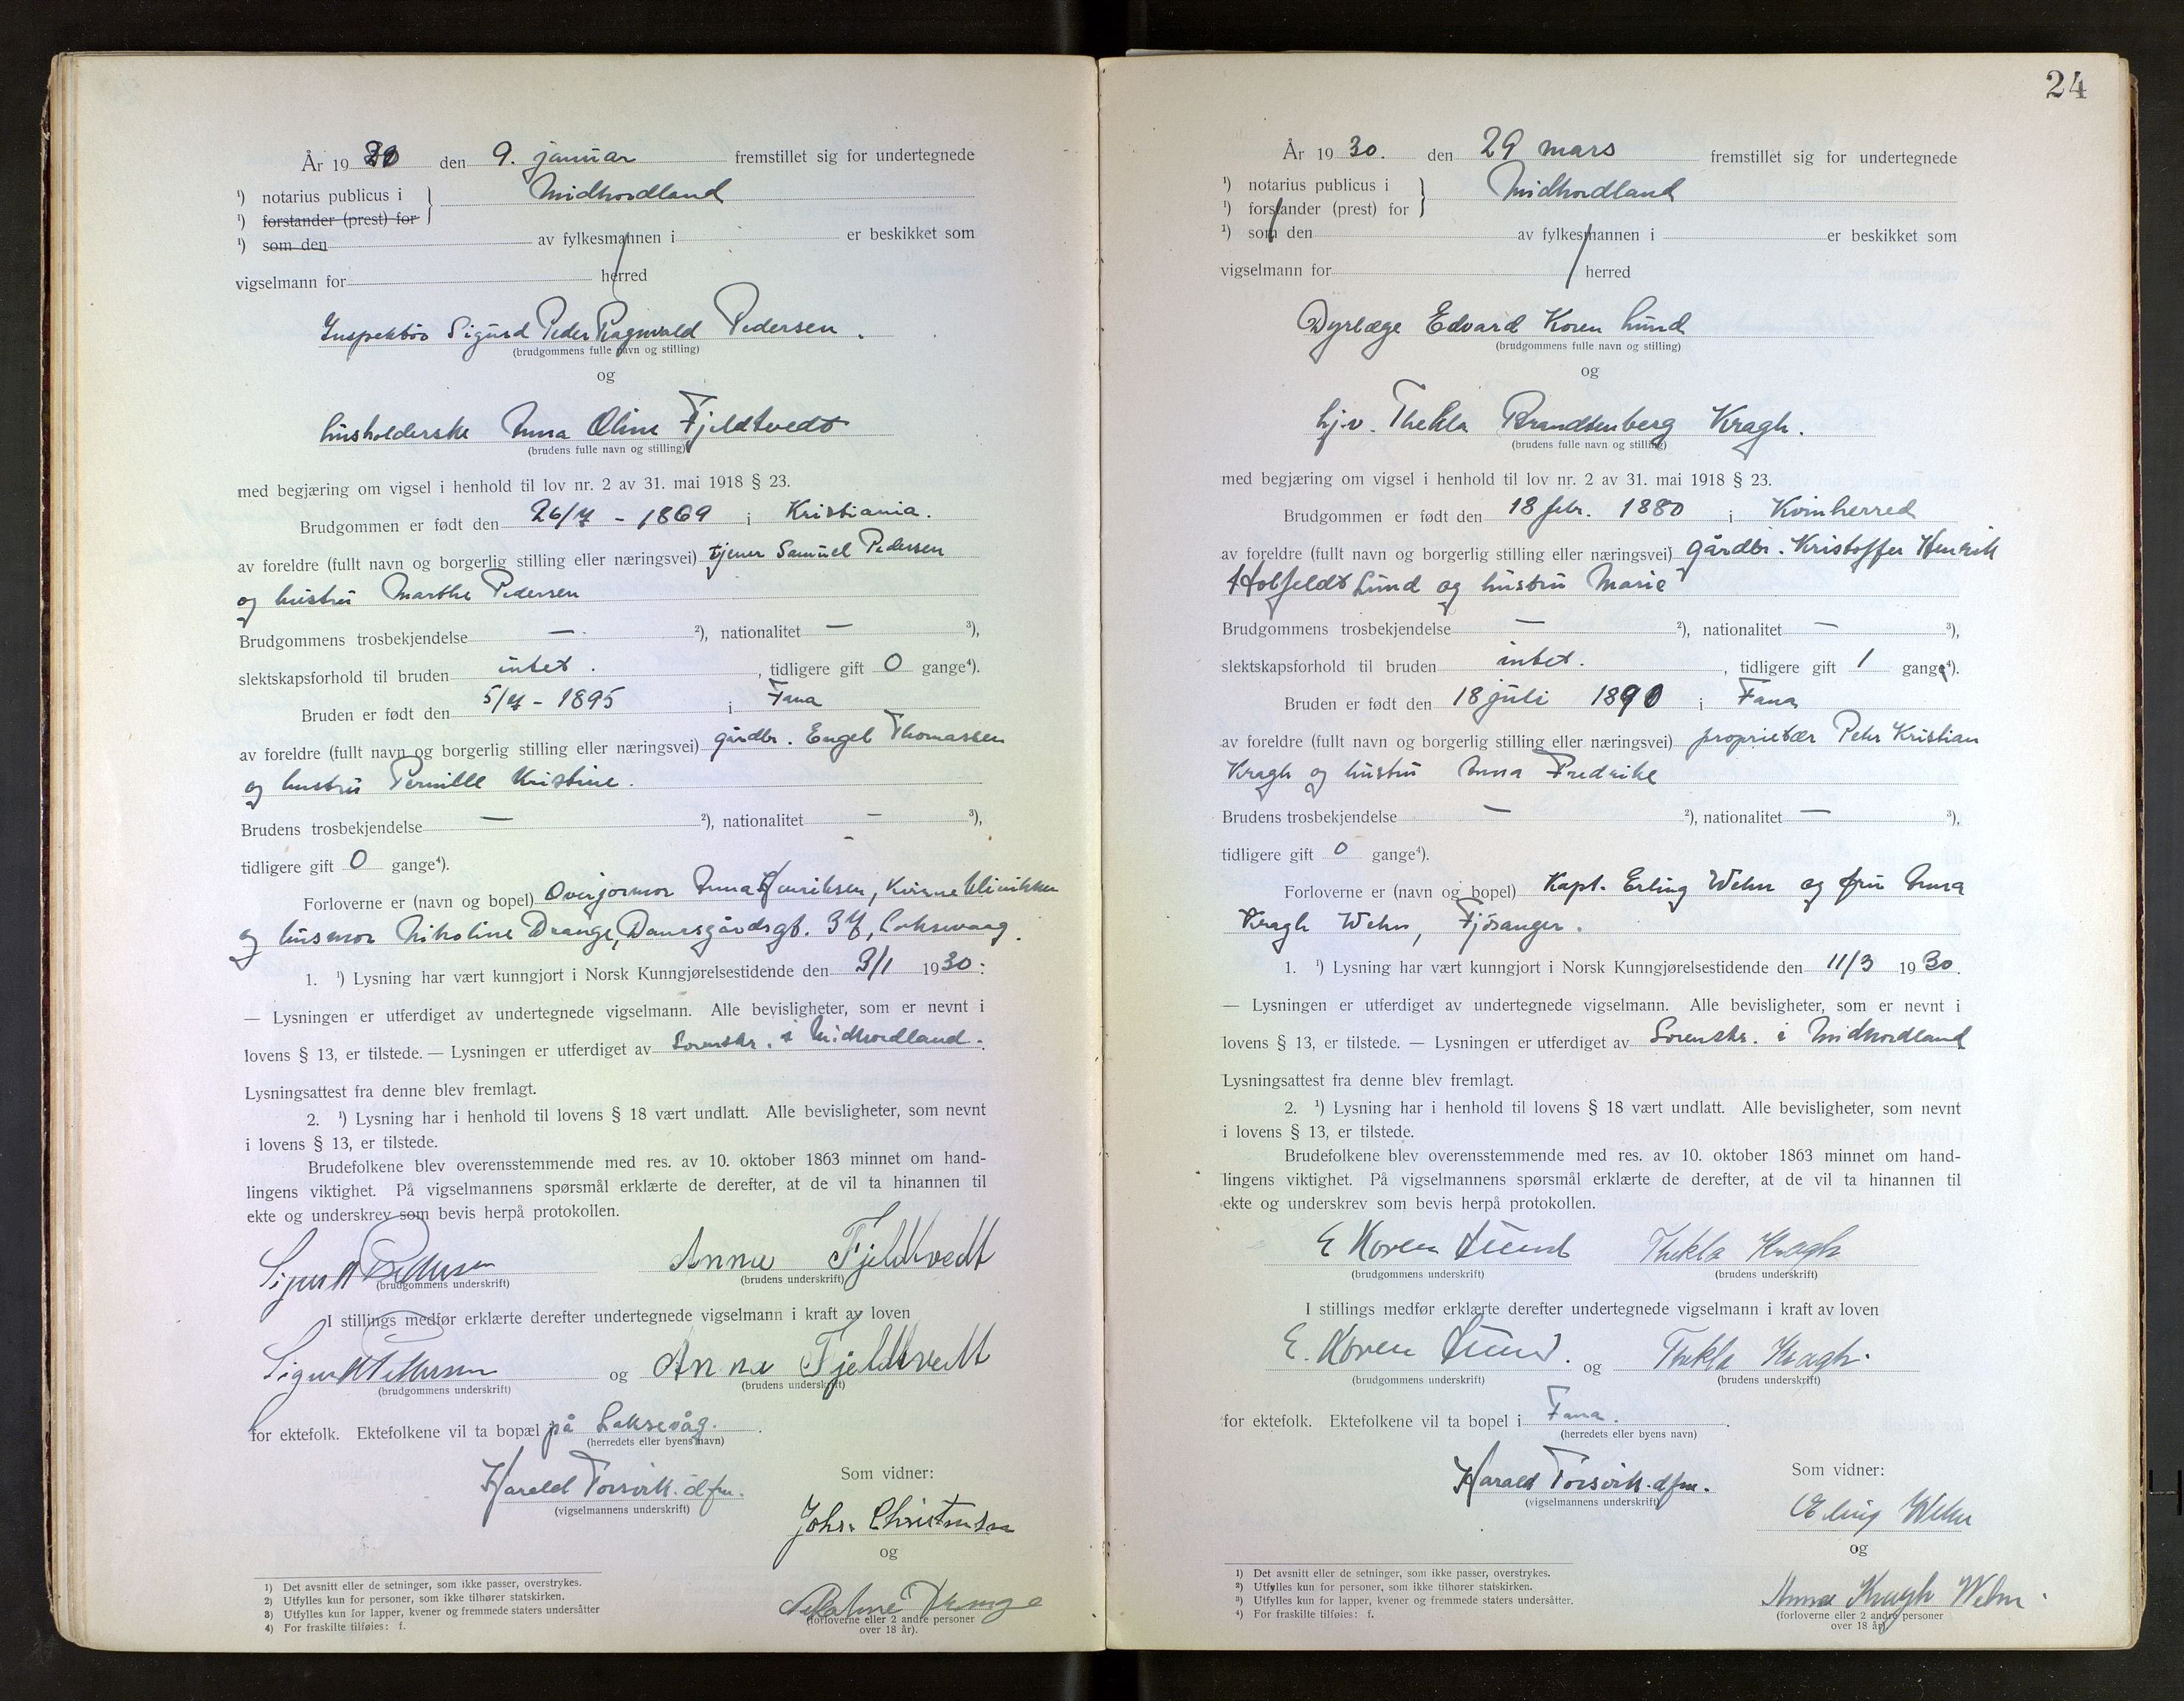 År 1930 den 9. januar fremstillet sig for undertegnede
¹) notarius publicus i } Midhordland
¹) forstander (prest) for
¹) som den av fylkesmannen i er beskikket som
vigselmann for herred
Inspektör Sigurd Peder Ragnvald Pedersen.
(brudgommens fulle navn og stilling)
og
husholderske Anna Oline Fjeldtvedt
(brudens fulle navn og stilling)
med begjæring om vigsel i henhold til lov nr. 2 av 31. mai 1918 § 23.
Brudgommen er født den 26/7 - 1869 i Kristiania.
av foreldre (fullt navn og borgerlig stilling eller næringsvei) tjener Samuel Pedersen
og hustru Marthe Pedersen
Brudgommens trosbekjendelse — ²), nationalitet — ³),
slektskapsforhold til bruden intet. , tidligere gift 0 gange⁴).
Bruden er født den 5/7 - 1895 i Fana
av foreldre (fullt navn og borgerlig stilling eller næringsvei) gårdbr. Engel Thomassen
og hustru Pernille Kristine.
Brudens trosbekjendelse — ²), nationalitet — ³),
tidligere gift 0 gange⁴).
Forloverne er (navn og bopel) Overjormor Anna Henriksen, Kvinneklinikken
og husmor Nikoline Drange, Damsgårdsgt. 37, Laksevaag.
1. ¹) Lysning har vært kunngjort i Norsk Kunngjørelsestidende den 3/1 1930.
— Lysningen er utferdiget av undertegnede vigselmann. Alle bevisligheter, som er nevnt i
lovens § 13, er tilstede. — Lysningen er utferdiget av Sorenskr. i Midhordland.
Lysningsattest fra denne blev fremlagt.
2. ¹) Lysning har i henhold til lovens § 18 vært undlatt. Alle bevisligheter, som nevnt
i lovens § 13, er tilstede.
Brudefolkene blev overensstemmende med res. av 10. oktober 1863 minnet om hand-
lingens viktighet. På vigselmannens spørsmål erklærte de derefter, at de vil ta hinannen til
ekte og underskrev som bevis herpå protokollen.
Sigurd Pedersen Anna Fjeldtvedt
(brudgommens underskrift) (brudens underskrift)
I stillings medfør erklærte derefter undertegnede vigselmann i kraft av loven
Sigurd Pedersen og Anna Fjeldtvedt
(brudgommens underskrift) (brudens underskrift)
for ektefolk. Ektefolkene vil ta bopæl på Laksevåg.
(herredets eller byens navn)
Harald Torsvik. dfm.
(vigselmannens underskrift)
Som vidner:
Johs. Christensen
og
Nikoline Drange
(forloverne eller 2 andre personer
over 18 år).
1) Det avsnitt eller de setninger, som ikke passer, overstrykes.
2) Utfylles kun for personer, som ikke tilhører statskirken.
3) Utfylles kun for lapper, kvener og fremmede staters undersåtter
4) For fraskilte tilføies: f.
24
År 1930. den 29 mars fremstillet sig for undertegnede
¹) notarius publicus i } Midhordland
¹) forstander (prest) for
¹) som den av fylkesmannen i er beskikket som
vigselmann for herred
Dyrlæge Edvard Koren Lund
(brudgommens fulle navn og stilling)
og
hj.v. Thekla Brandtenberg Kragh.
(brudens fulle navn og stilling)
med begjæring om vigsel i henhold til lov nr. 2 av 31. mai 1918 § 23.
Brudgommen er født den 18 febr. 1880 i Kvinherred
av foreldre (fullt navn og borgerlig stilling eller næringsvei) gårdbr. Kristoffer Henrik
Holfeldt Lund og hustru Marie
Brudgommens trosbekjendelse — ²), nationalitet — ³),
slektskapsforhold til bruden intet. , tidligere gift 1 gang⁴).
Bruden er født den 18 juli 1890 i Fana
av foreldre (fullt navn og borgerlig stilling eller næringsvei) proprietær Peter Kristian
Kragh og hustru Anna Fredrike
Brudens trosbekjendelse — ²), nationalitet — ³),
tidligere gift 0 gange⁴).
Forloverne er (navn og bopel) Kapt. Erling Wehn og fru Anna
Kragh Wehn, Fjösanger.
1. ¹) Lysning har vært kunngjort i Norsk Kunngjørelsestidende den 11/3 1930.
— Lysningen er utferdiget av undertegnede vigselmann. Alle bevisligheter, som er nevnt i
lovens § 13, er tilstede. — Lysningen er utferdiget av Sorenskr. i Midhordland
Lysningsattest fra denne blev fremlagt.
2. ¹) Lysning har i henhold til lovens § 18 vært undlatt. Alle bevisligheter, som nevnt
i lovens § 13, er tilstede.
Brudefolkene blev overensstemmende med res. av 10. oktober 1863 minnet om hand-
lingens viktighet. På vigselmannens spørsmål erklærte de derefter, at de vil ta hinannen til
ekte og underskrev som bevis herpå protokollen.
E Koren Lund Thekla Kragh
(brudgommens underskrift) (brudens underskrift)
I stillings medfør erklærte derefter undertegnede vigselmann i kraft av loven
E. Koren Lund. og Thekla Kragh.
(brudgommens underskrift) (brudens underskrift)
for ektefolk. Ektefolkene vil ta bopel i Fana.
(herredets eller byens navn)
Harald Torsvik. dfm.
(vigselmannens underskrift)
Som vidner:
Erling Wehn
og
Anna Kragh Wehn.
(forloverne eller 2 andre personer
over 18 år)
1) Det avsnitt eller de setninger, som ikke passer, overstrykes.
2) Utfylles kun for personer, som ikke tilhører statskirken.
3) Utfylles kun for lapper, kvener og fremmede staters undersåtter.
4) For fraskilte tilføies: f.